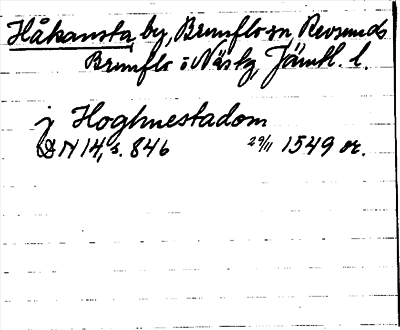 Håkansta, by, Brunflo sn Revsunds
Brunflo o Näs tg, Jämtl. l.
j Hoghnestadom
DN 14, s. 846 29/11 1549 or.